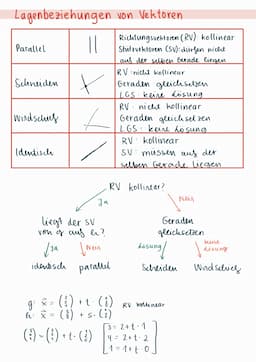 Lagenbeziehungen von Vektoren
Parallel
Richtungsvektoren (RV) kollinear
Stützvektoren (SV): dürfen nicht
auf der selben Gerade liegen
Schneiden
RV: nicht kollinear
Geraden gleichsetzen
LGS: keine Lösung
Windschief
RV: nicht kollinear
Geraden gleichsetzen
LGS: keine Lösung
Identisch
RV: kollinear
SV: müssen auf der
selben Gerade liegen
RV kollinear?
Ja
Nein
Liegt der SV
von g auf h?
Geraden
gleichsetzen
Ja
Nein
Lösung
keine Lösung
identisch
parallel
Schneiden
Windschief
RV kollinear
3 = 2 + t · 1
4 = 2 + t · 2
1 = 1 + t · 0